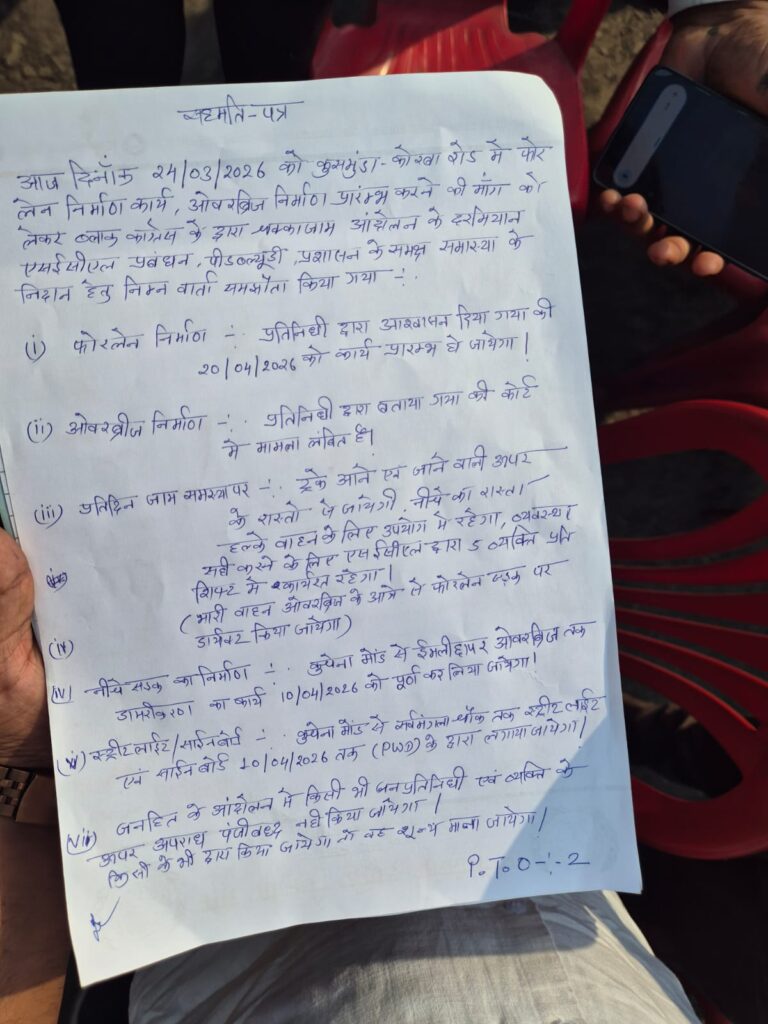 सहमति-पत्र
आज दिनाँक 24/03/2026 को कुसमुंडा-कोरबा रोड मे फोर
लेन निर्माण कार्य, ओवरब्रिज निर्माण प्रारंभ करने की माँग को
लेकर ब्लाक कांग्रेस के द्वारा चक्काजाम आंदोलन के दरमियान
एसईसीएल प्रबंधन, पीडब्ल्यूडी, प्रशासन के समक्ष समास्या के
निदान हेतु निम्न वार्ता समझौता किया गया -:.
(i) फोरलेन निर्माण -:. प्रतिनिधी द्वारा आश्वासन दिया गया की
20/04/2026 को कार्य प्रारम्भ हो जायेगा।
(ii) ओवरब्रीज निर्माण -:. प्रतिनिधी द्वारा बताया गया की कोर्ट
मे मामला लंबित है।
(iii) प्रतिदिन जाम समस्या पर -:. ट्रके आने एवं जाने वाली ऊपर
के रास्तो से जायेगी, नीचे का रास्ता
हल्के वाहन के लिए उपयोग मे रहेगा, व्यवस्था
सही करने के लिए एसईसीएल द्वारा 5 व्यक्ति प्रति
शिफ्ट मे कार्यरत रहेगा।
(भारी वाहन ओवरब्रिज के आगे से फोरलेन सड़क पर
डायवर्ट किया जायेगा)
(iv)
(iv) नीचे सड़क का निर्माण -:. कुचेना मोड से ईमलीछापर ओवरब्रिज तक
डामरीकरण का कार्य 10/04/2026 को पूर्ण कर लिया जायेगा।
स्ट्रीट लाईट/साईन बोर्ड -:. कुचेना मोड से सर्वमंगला चौक तक स्ट्रीट लाईट
एवं साईन बोर्ड 10/04/2026 तक (PWD) के द्वारा लगाया जायेगा।
(vii) जनहित के आंदोलन मे किसी भी जनप्रतिनिधी एवं व्यक्ति के
ऊपर अपराध पंजीबध्द नही किया जायेगा।
किसी के भी द्वारा किया जायेगा तो वह शून्य माना जायेगा।
P.T.O -:- 2